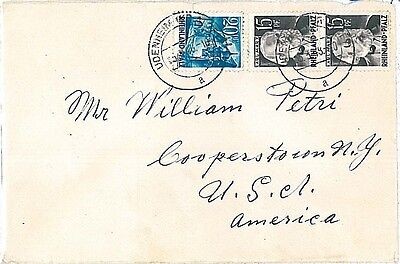 UDENHEIM
15 PF RHEINLAND-PFALZ
15 PF RHEINLAND-PFALZ
a
a
Mr William Petri
Cooperstown N.Y.
U.S.A.
America